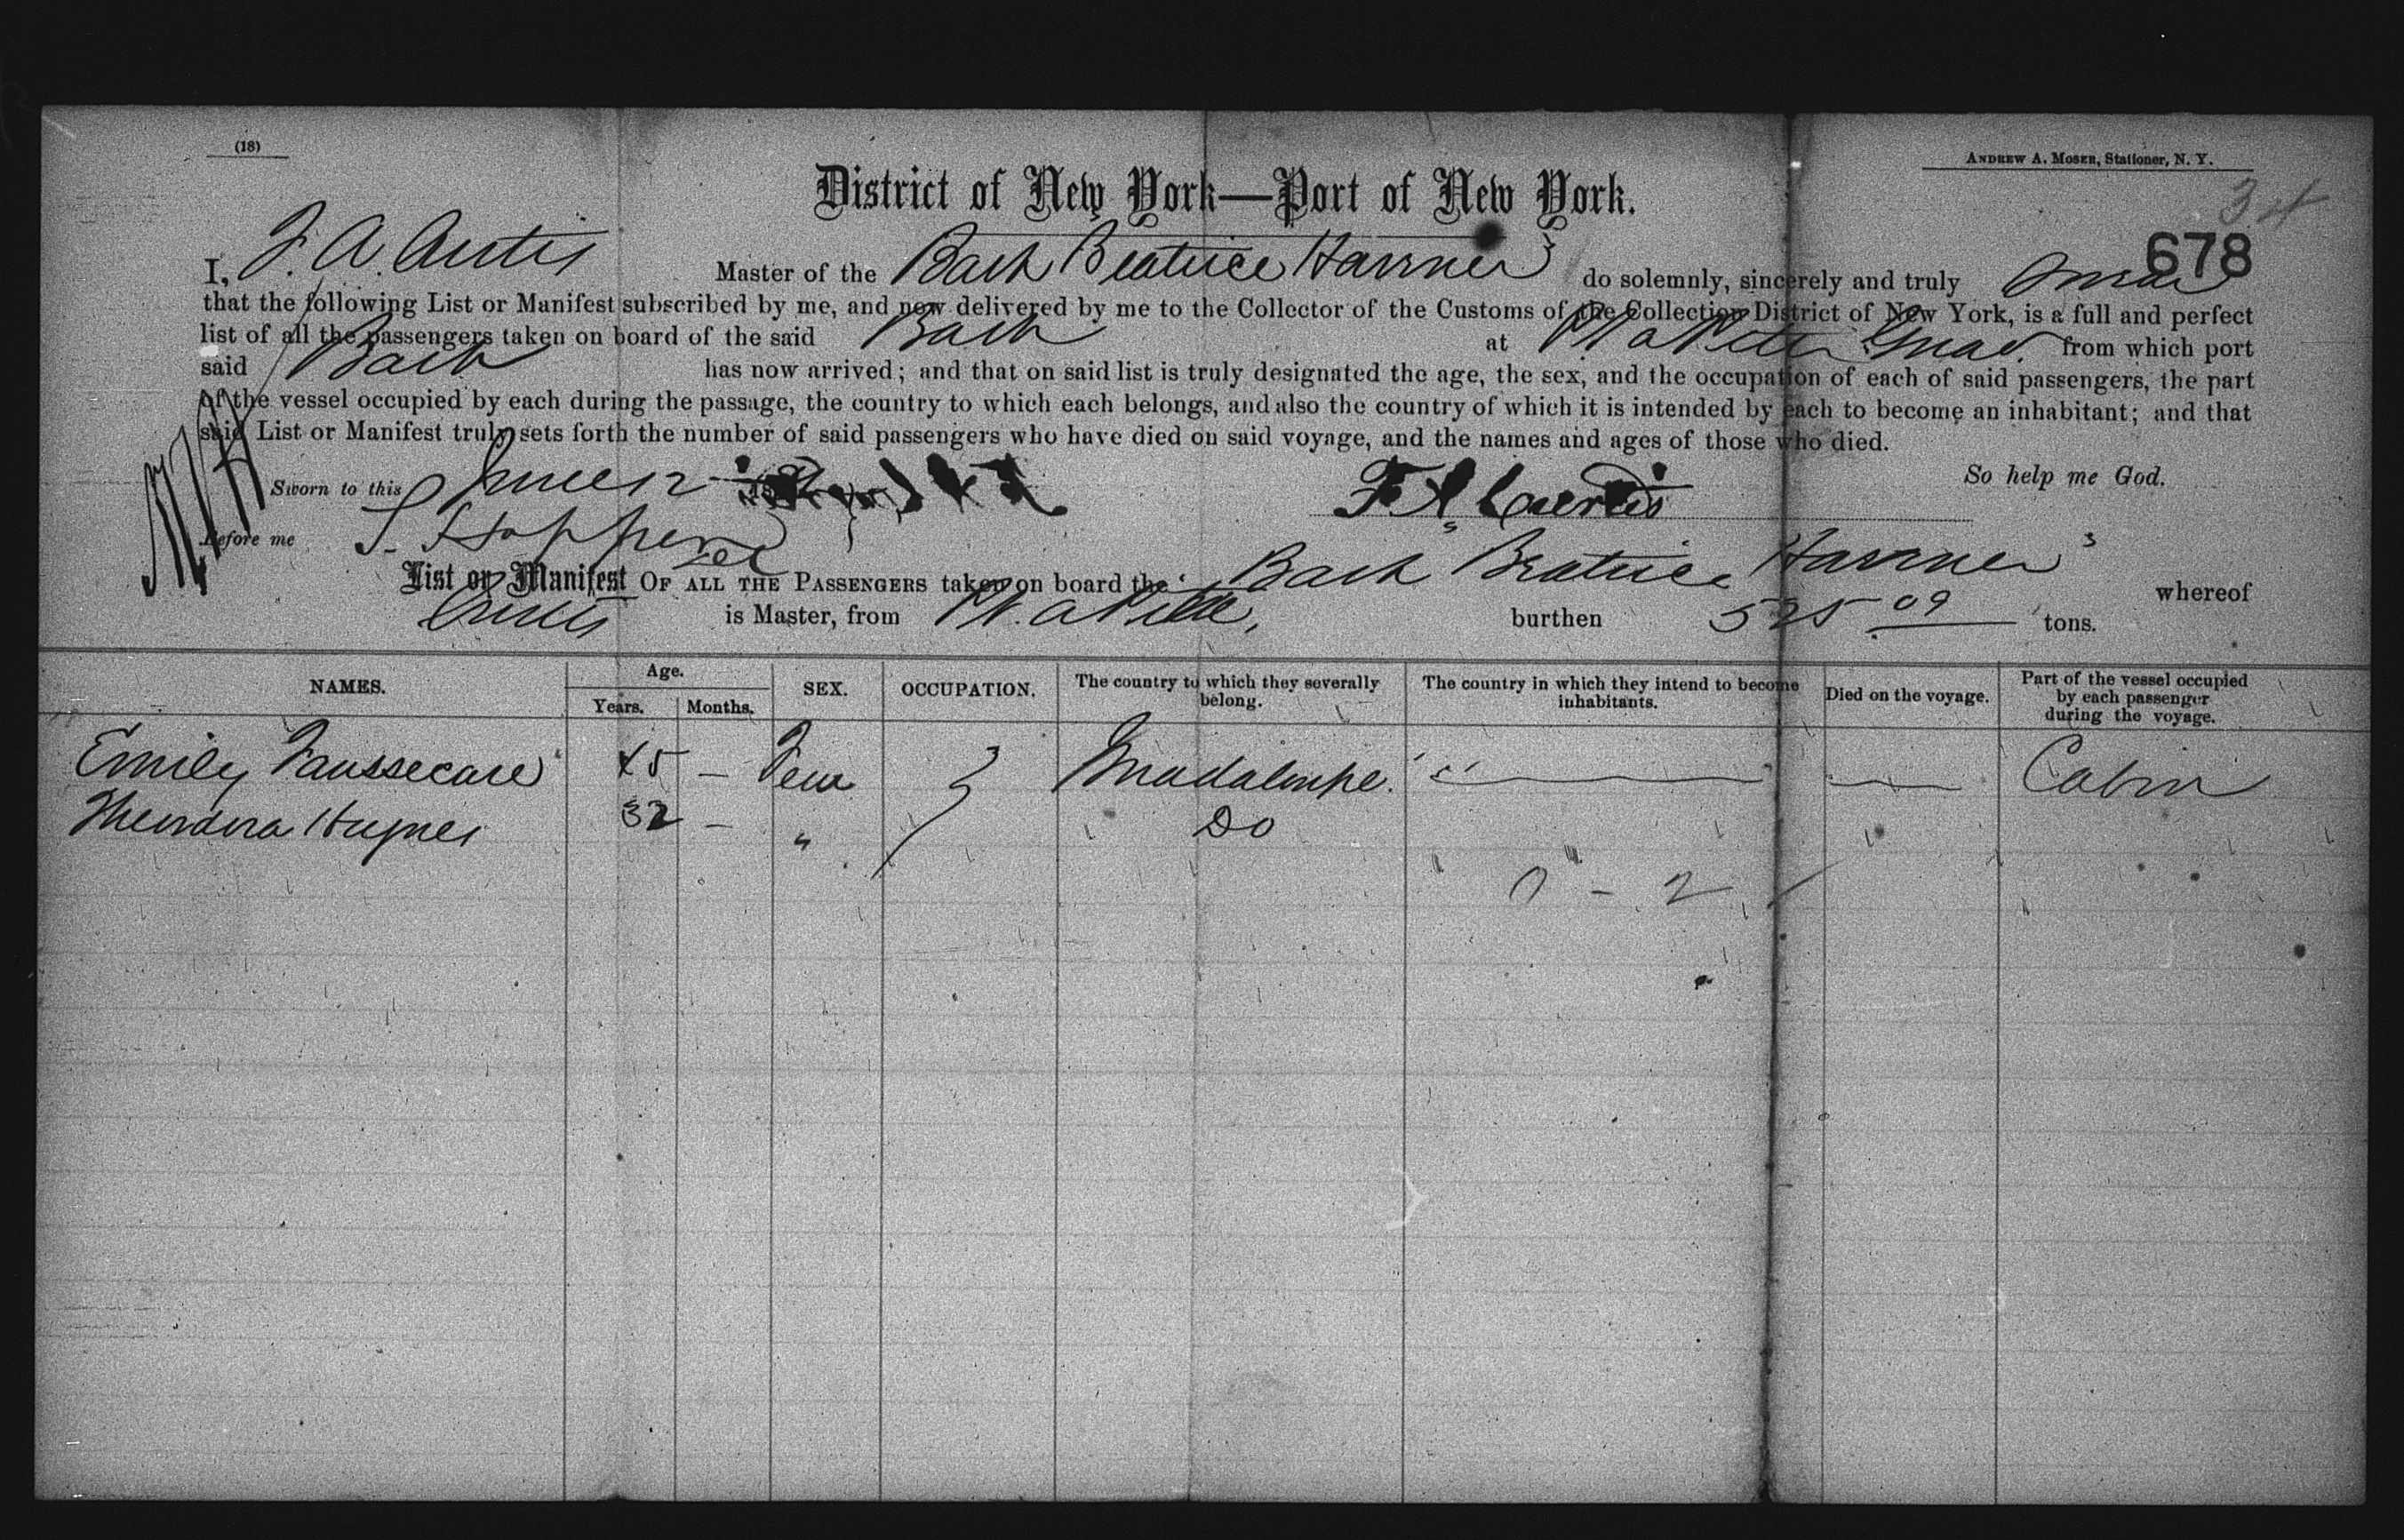 (18)
ANDREW A. MOSER, Stationer, N. Y.
34
District of New York—Port of New York.
678
I, F. A. Curtis Master of the Bark Beatrice Havener do solemnly, sincerely and truly swear
that the following List or Manifest subscribed by me, and now delivered by me to the Collector of the Customs of the Collection District of New York, is a full and perfect
list of all the passengers taken on board of the said Bark at Pt a Pitre Guad. from which port
said Bark has now arrived; and that on said list is truly designated the age, the sex, and the occupation of each of said passengers, the part
of the vessel occupied by each during the passage, the country to which each belongs, and also the country of which it is intended by each to become an inhabitant; and that
said List or Manifest truly sets forth the number of said passengers who have died on said voyage, and the names and ages of those who died.
So help me God.
Sworn to this June 12 18
F. A. Curtis
Before me
List or Manifest OF ALL THE PASSENGERS taken on board the Bark Beatrice Havener whereof
Curtis is Master, from Pt. a Pitre, burthen 525 09 tons.
NAMES. Age. Years. Months. SEX. OCCUPATION. The country to which they severally belong. The country in which they intend to become inhabitants. Died on the voyage. Part of the vessel occupied by each passenger during the voyage.
Emily Faussecave 45 — Fem Guadaloupe. — — Cabin
Theodora Hughes 32 — " Do
0 - 2